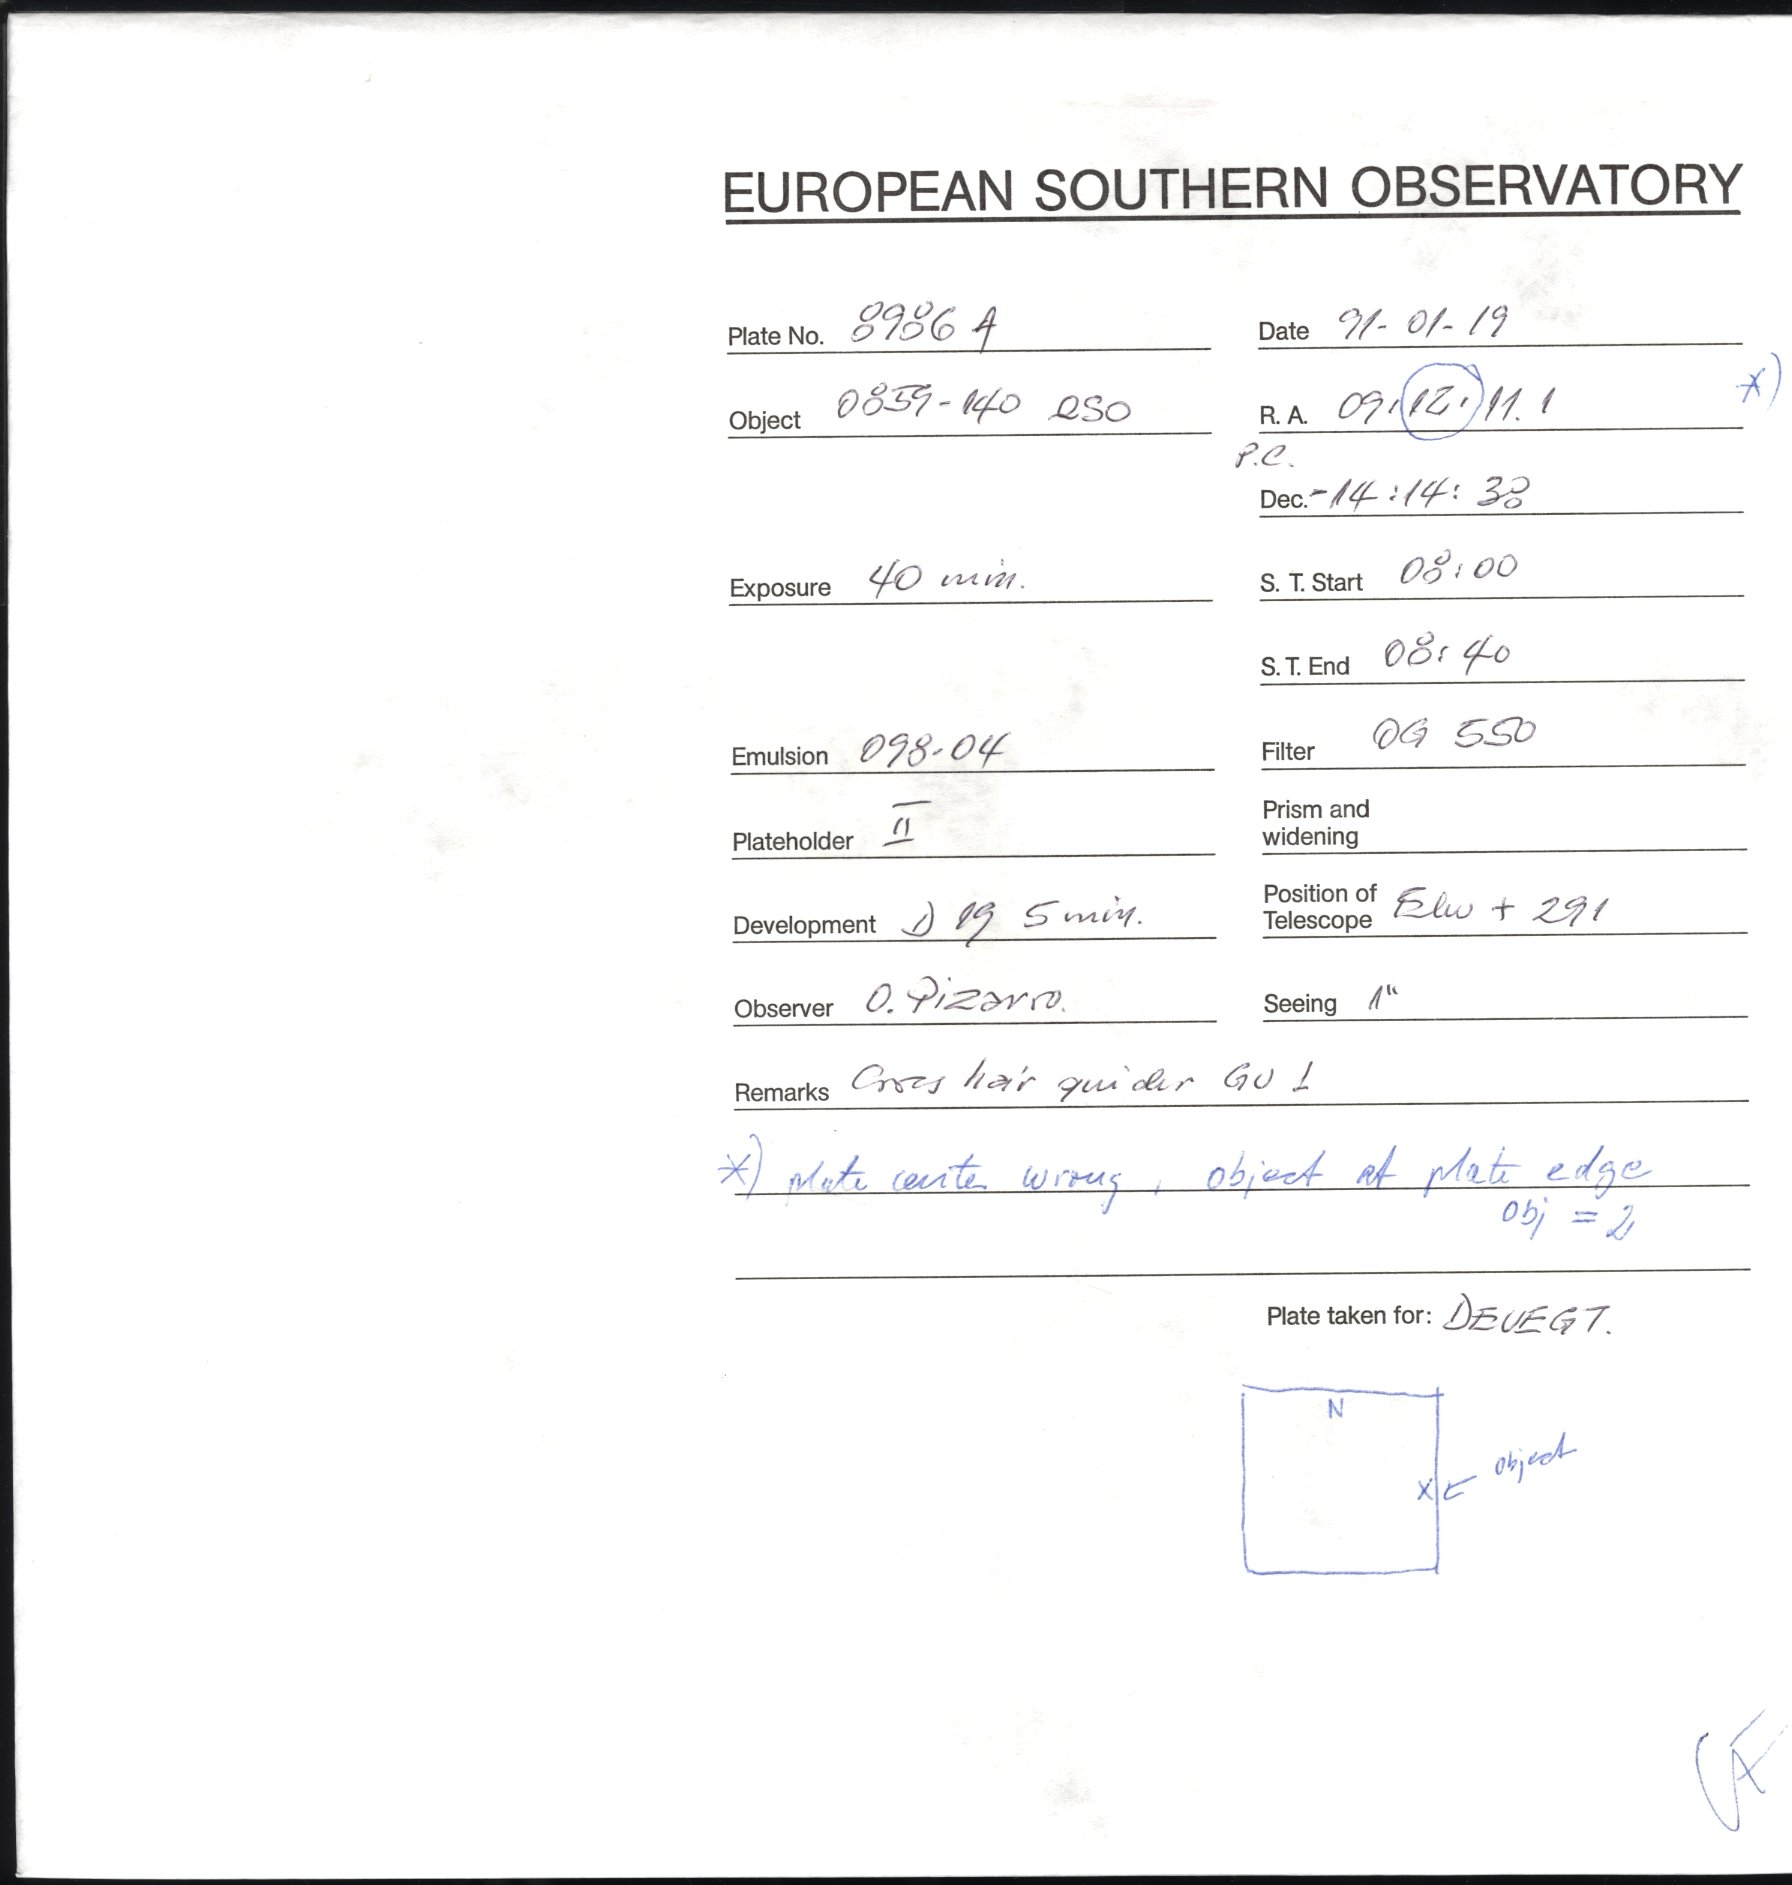 EUROPEAN SOUTHERN OBSERVATORY
Plate No. 8986 A Date 91-01-19
Object 0859-140 QSO R. A. 09:12:11.1 *)
P.C.
Dec. -14:14:38
Exposure 40 min. S. T. Start 08:00
S. T. End 08:40
Emulsion 098-04 Filter OG 550
Plateholder II Prism and
widening
Development D 19 5 min. Position of
Telescope Elw + 291
Observer O. Pizarro. Seeing 1"
Remarks Cross hair guider GU 1
*) plate center wrong, object at plate edge
obj = 2
Plate taken for: DEVEGT.
N
X ← object